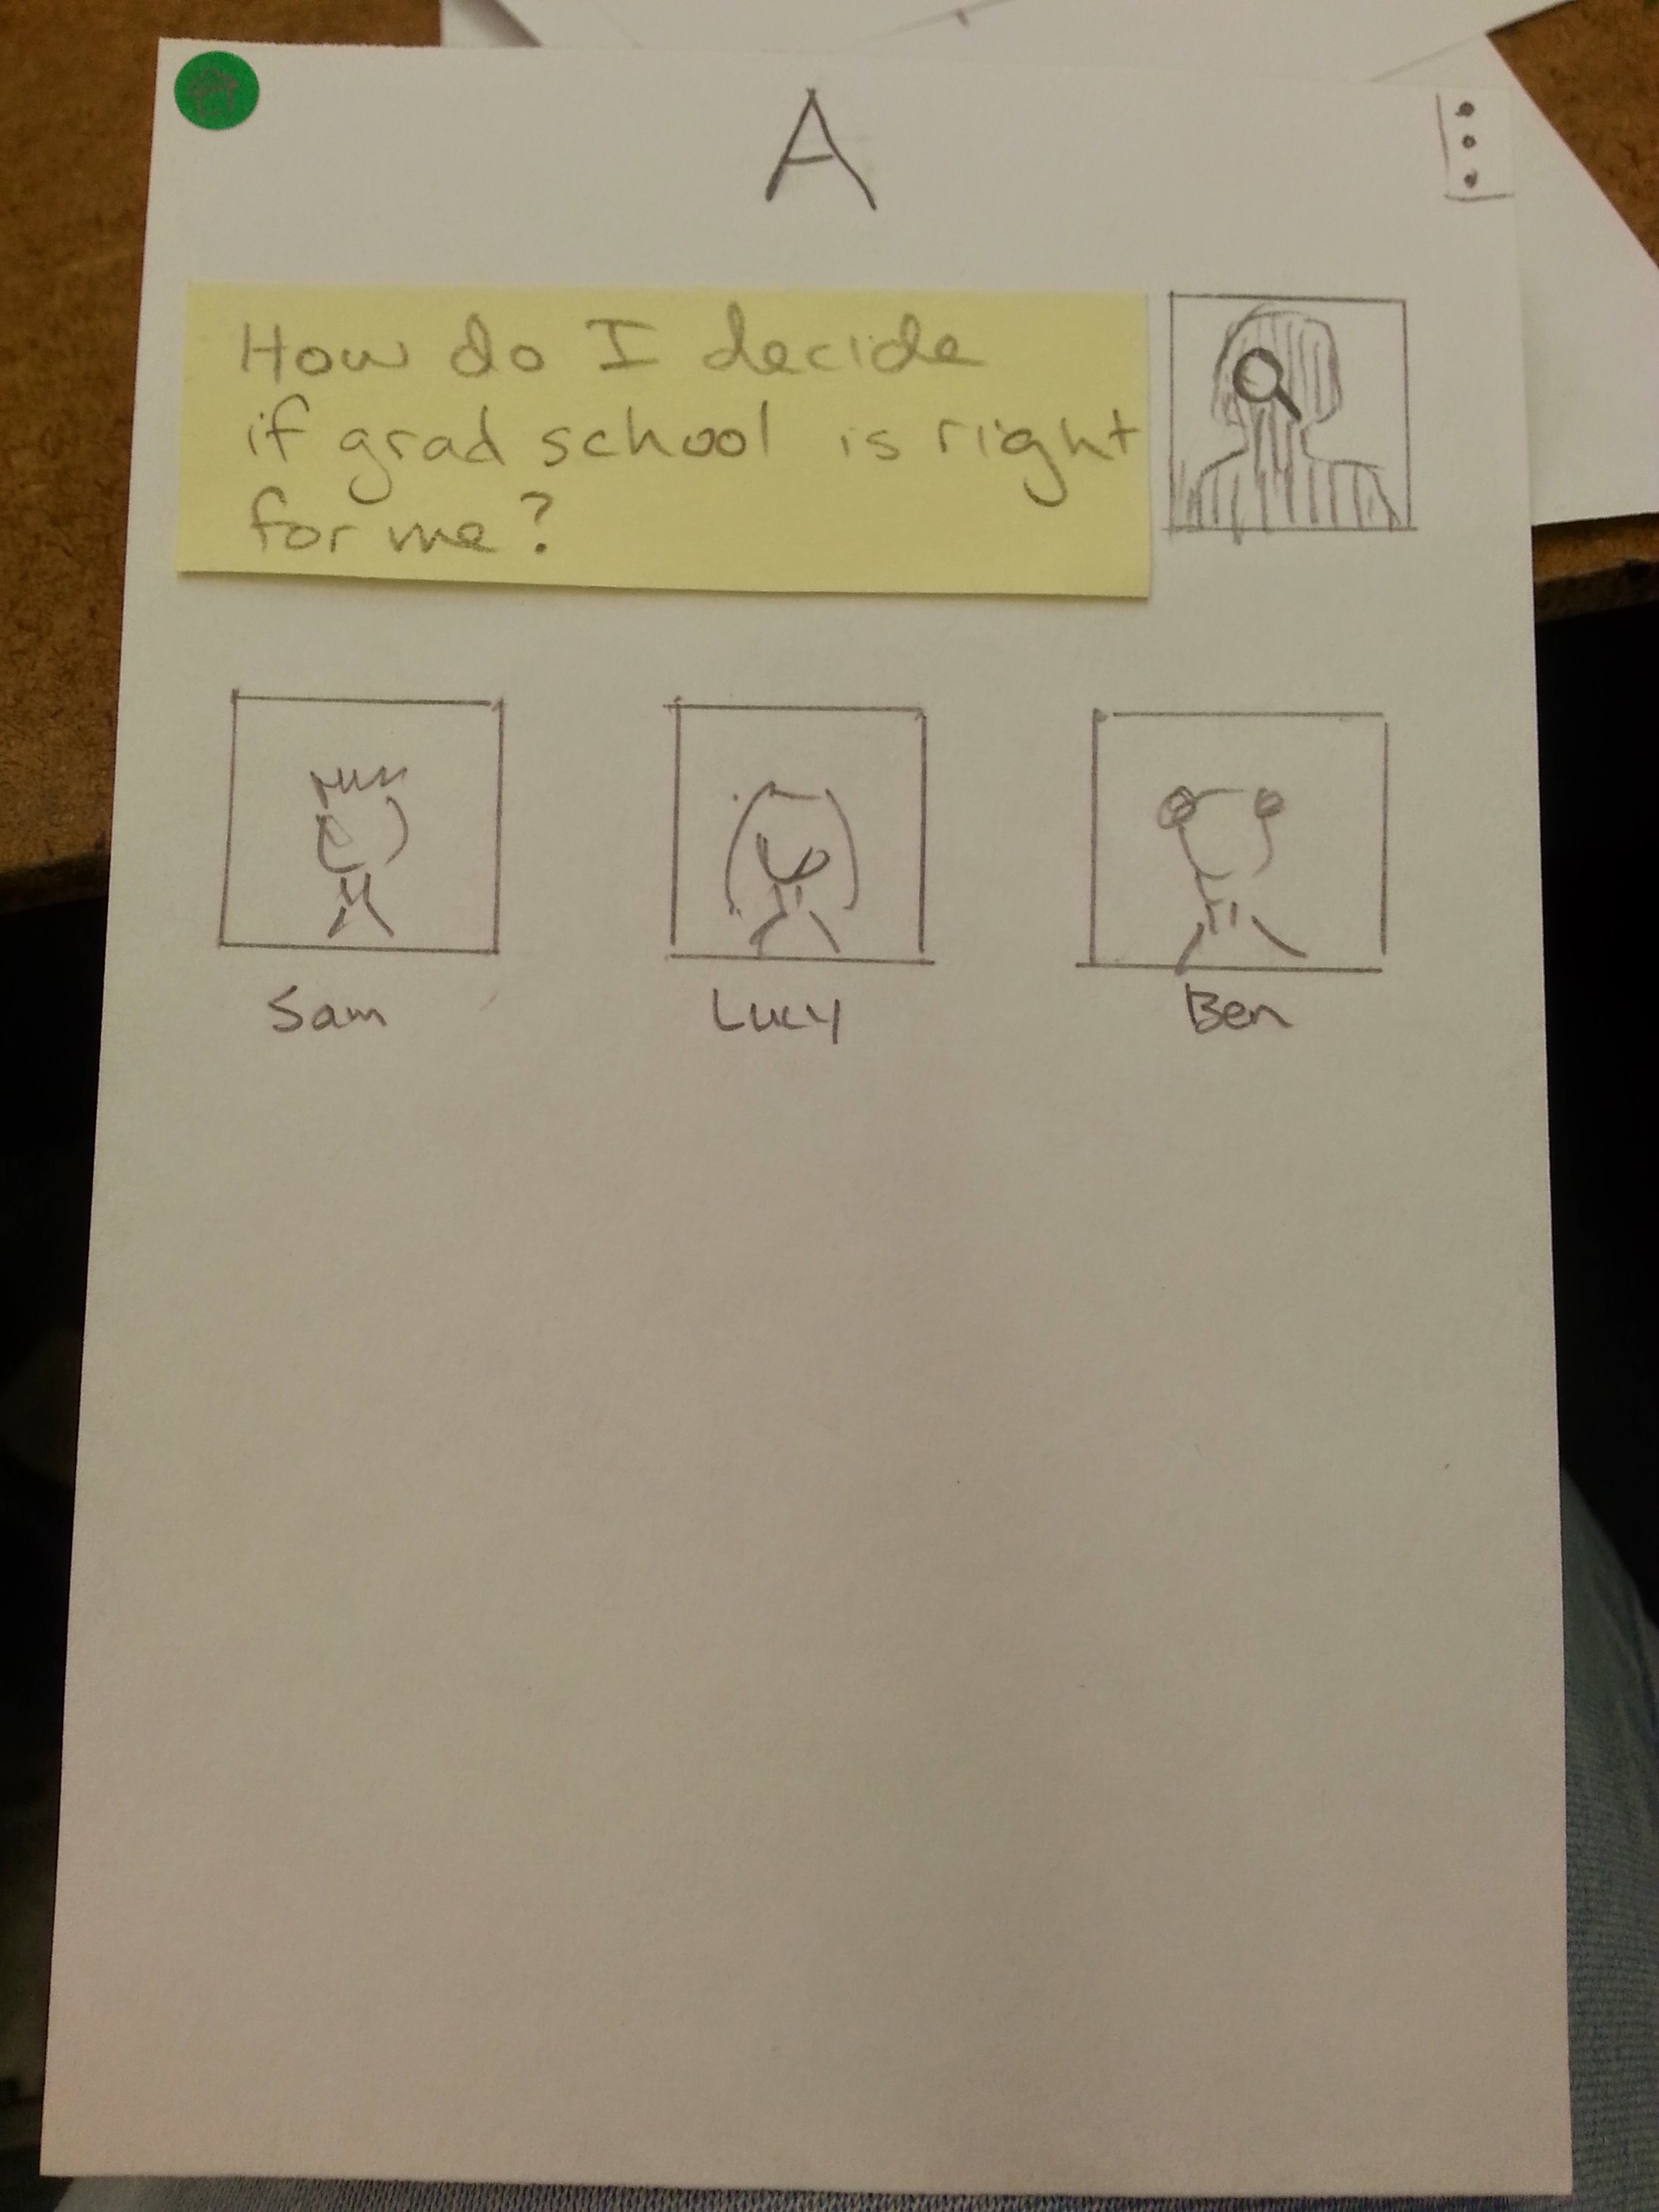 A
How do I decide
if grad school is right
for me?
Sam Lucy Ben